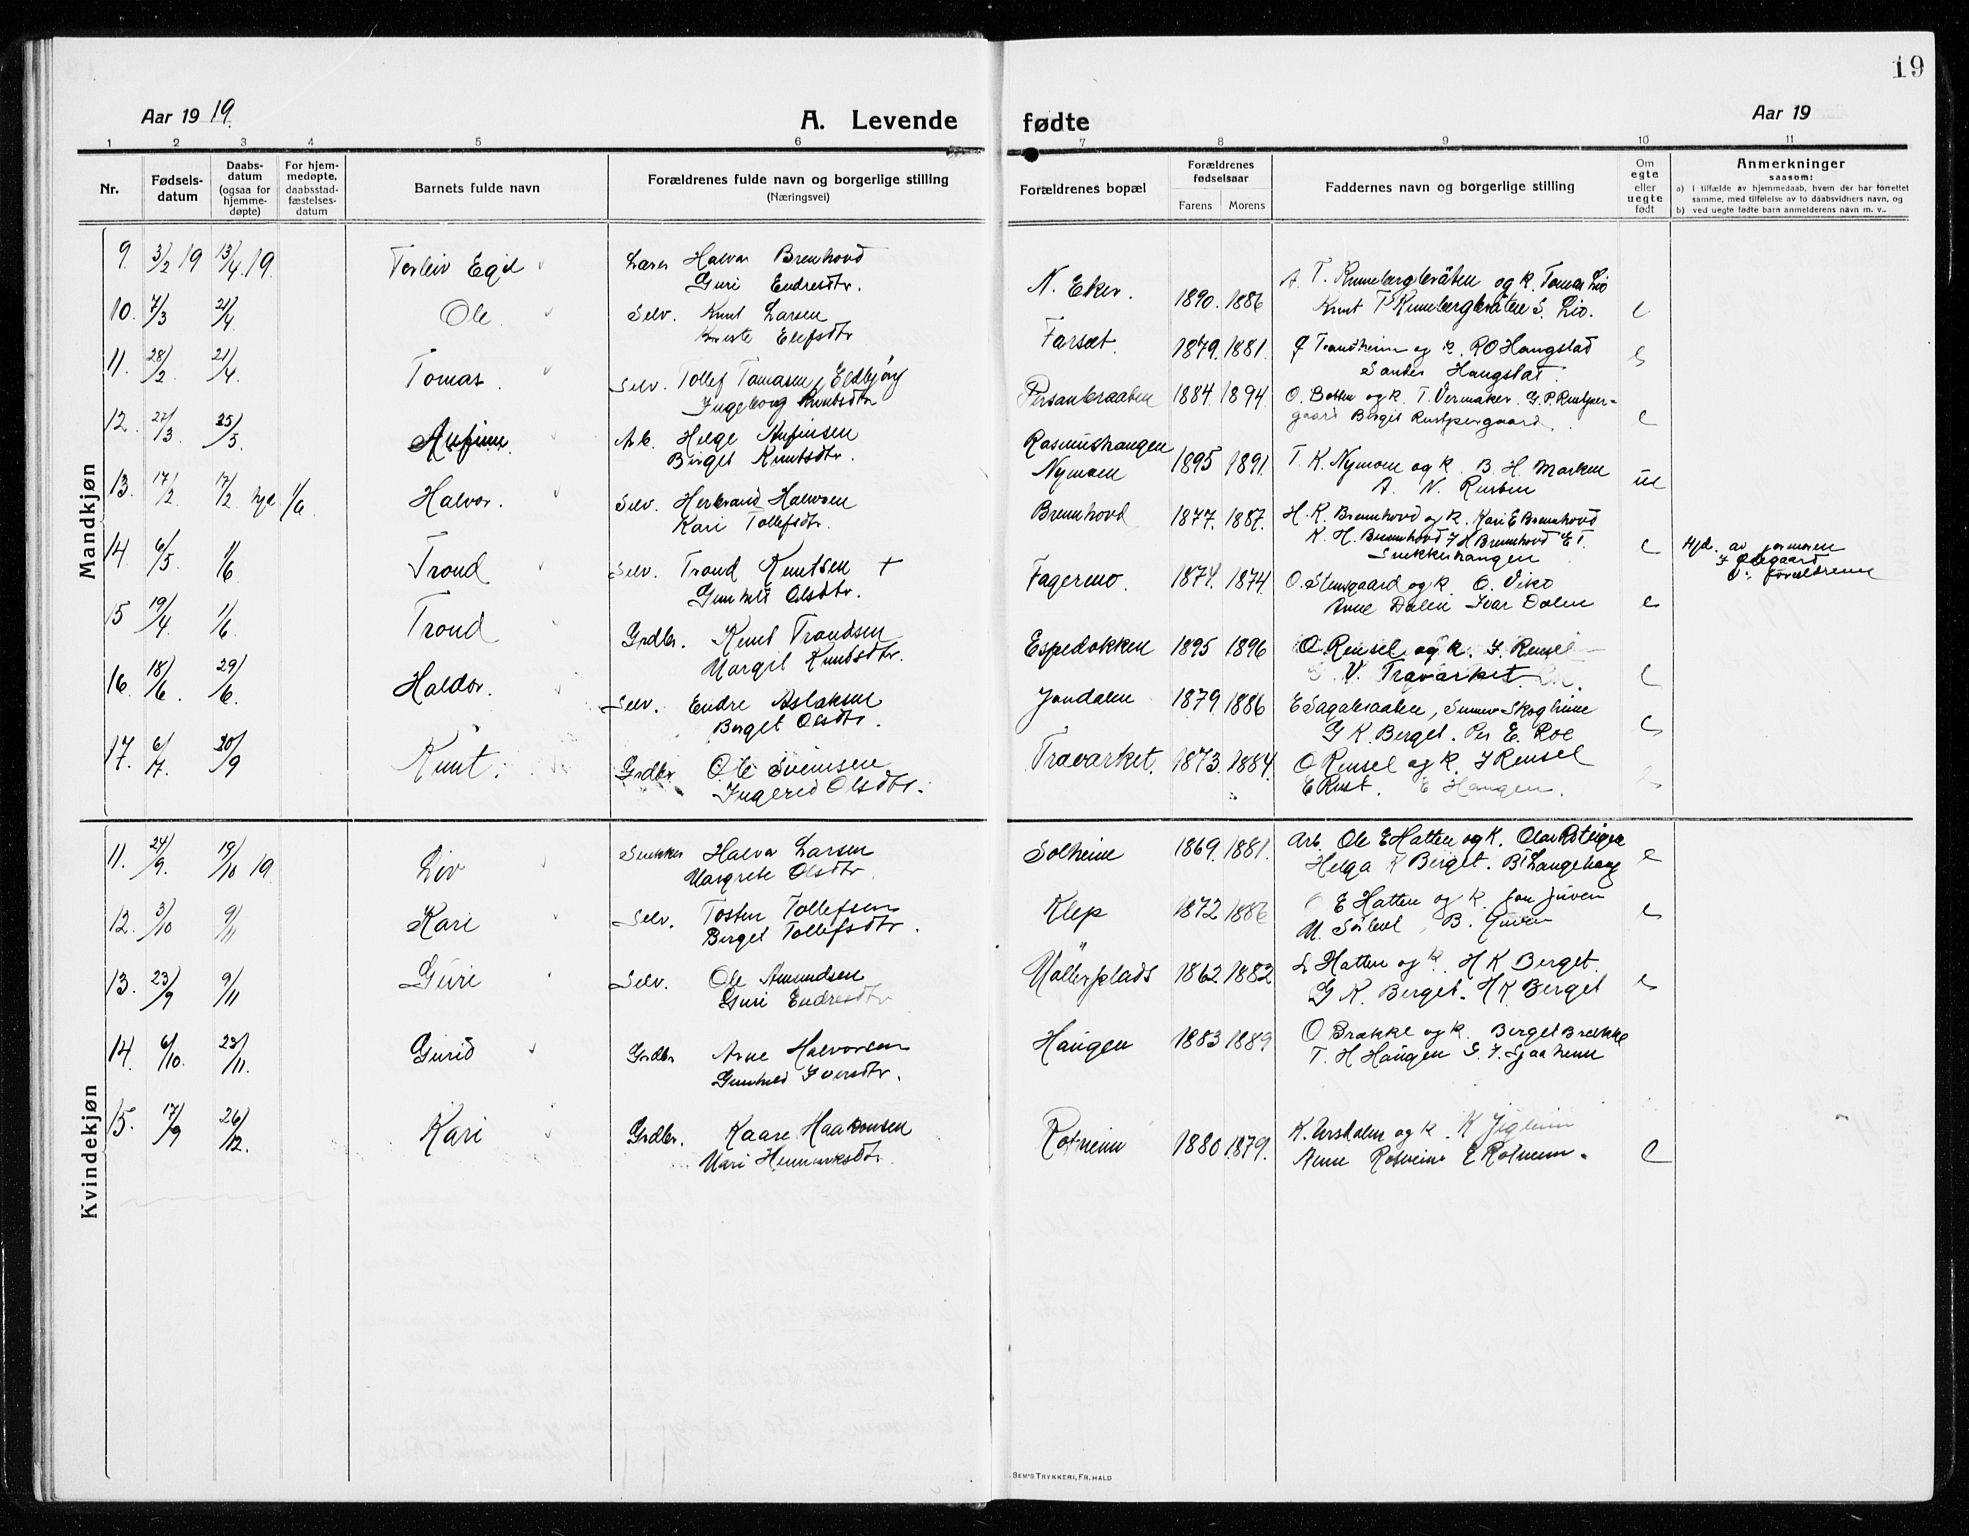 19
Aar 19 19.
A. Levende fødte
Aar 19
1 2 3 4 5 6 7 8 9 10 11
Nr.
Fødselsdatum
Daabsdatum (ogsaa for hjemmedøpte)
For hjemmedøpte, daabsstadfæstelsesdatum
Barnets fulde navn
Forældrenes fulde navn og borgerlige stilling
(Næringsvei)
Forældrenes bopæl
Forældrenes fødselsaar
Farens Morens
Faddernes navn og borgerlige stilling
Om egte eller uegte født
Anmerkninger
saasom:
a) I tilfælde av hjemmedaab, hvem der har forrettet samme, med tilføielse av to daabsvidners navn, og
b) ved uegte fødte barn anmelderens navn m. v..
Mandkjøn
9. 3/2 19 13/4 19. Torleiv Egil Halvor Brenhovd
Guri Endresdtr. N. Eker. 1890. 1886
10. 7/3 21/4 Ole Selv. Knut Larsen
Elefsdtr Farsæt. 1879. 1881. Trondheim og k. R O Haugstad
Haugstad
11. 28/2 21/4 Tomas. Selv. Tollef Tomasen Eldbjørg
Ingeborg Knutsdtr Persenbraaten 1884. 1894. O. Botten og k. T. Vermaker. G. P. Rustper-
gaard Bergit Rustpergaard. e
12. 27/3 25/5 Anfinn. Ab. Helge Anfinsen
Birget Knutsdtr. Rasmushaugen
Nymoen 1895 1891. T. K. Nymoen og k. B. H. Moeken
A. N. Rusten ue
13. 17/2 17/2 hjd 1/6 Halvor. Selv. Herbrand Halvorsen
Kari Tollefsdtr. Brenhovd 1877. 1887. H. K. Brenhovd og k. Kari E Brenhovd
K. H. Brenhovd I H Brenhovd E T.
Snekkerhaugen e Hjd. av jormoren
I Ødegaard
V: forældrene
14. 6/5 1/6 Trond Selv. Trond Knutsen +
Gunhild Olsdtr. Fagermo. 1874. 1874. O. Stensgaard og k. O. Viko
Arne Dalen Ivar Dalen e
15 19/4 1/6 Trond Grdbr. Knut Trondsen
Margit Knutsdtr. Espedokken 1895 1896 O Rensel og k. I. Rensel
V. Travarket. e
16. 18/6. 29/6. Haldor. Selv. Endre Aslaksen
Berget Olsdtr. Jondalen 1879. 1886 E Sagabraaten, Skogheim
G K. Berget. Per E. Roe e
17. 6/7. 20/9 Knut. Grdbr Ole Svensen
Ingerid Olsdtr. Travarket. 1873. 1884. O Rensel og k. I Rensel
E Rust. E Haugen. e
Kvindekjøn
11. 24/9. 19/10 19. Liv Snekker Halvor Larsen
Margrete Olsdtr. Solheim 1869. 1881. Arb. Ole E Hatten og k. Olav Roteigen
Helga K Berget. B T Langehaug e
12. 3/10 9/11 Kari Selv. Tosten Tollefsen
Berget Tollefsdtr. Klep 1872 1886 O E Hatten og k. Jon Juven
M. B. Juven e
13. 23/9 9/11 Guri Selv. Ole Amundsen
Guri Endresdtr Møllerplads 1862 1882 L Hatten og k. H K Berget.
G K. Berget. H K Berget e
14. 6/10. 23/11. Gurid Grdbr Arne Halvorsen
Gunhild Iversdtr. Haugen 1883 1889 O Brække og k. Berget Brække
T. H Haugen G. I. Sjaaheim
15. 17/9 26/12. Kari Grdbr. Kaare Haakonsen
Mari Henriksdtr. Rotneim 1880 1879. K. Ursdalen og k. K Jigleim
Anne Rotneim E Rotneim. e
SEM'S TRYKKERI, FR. HALD